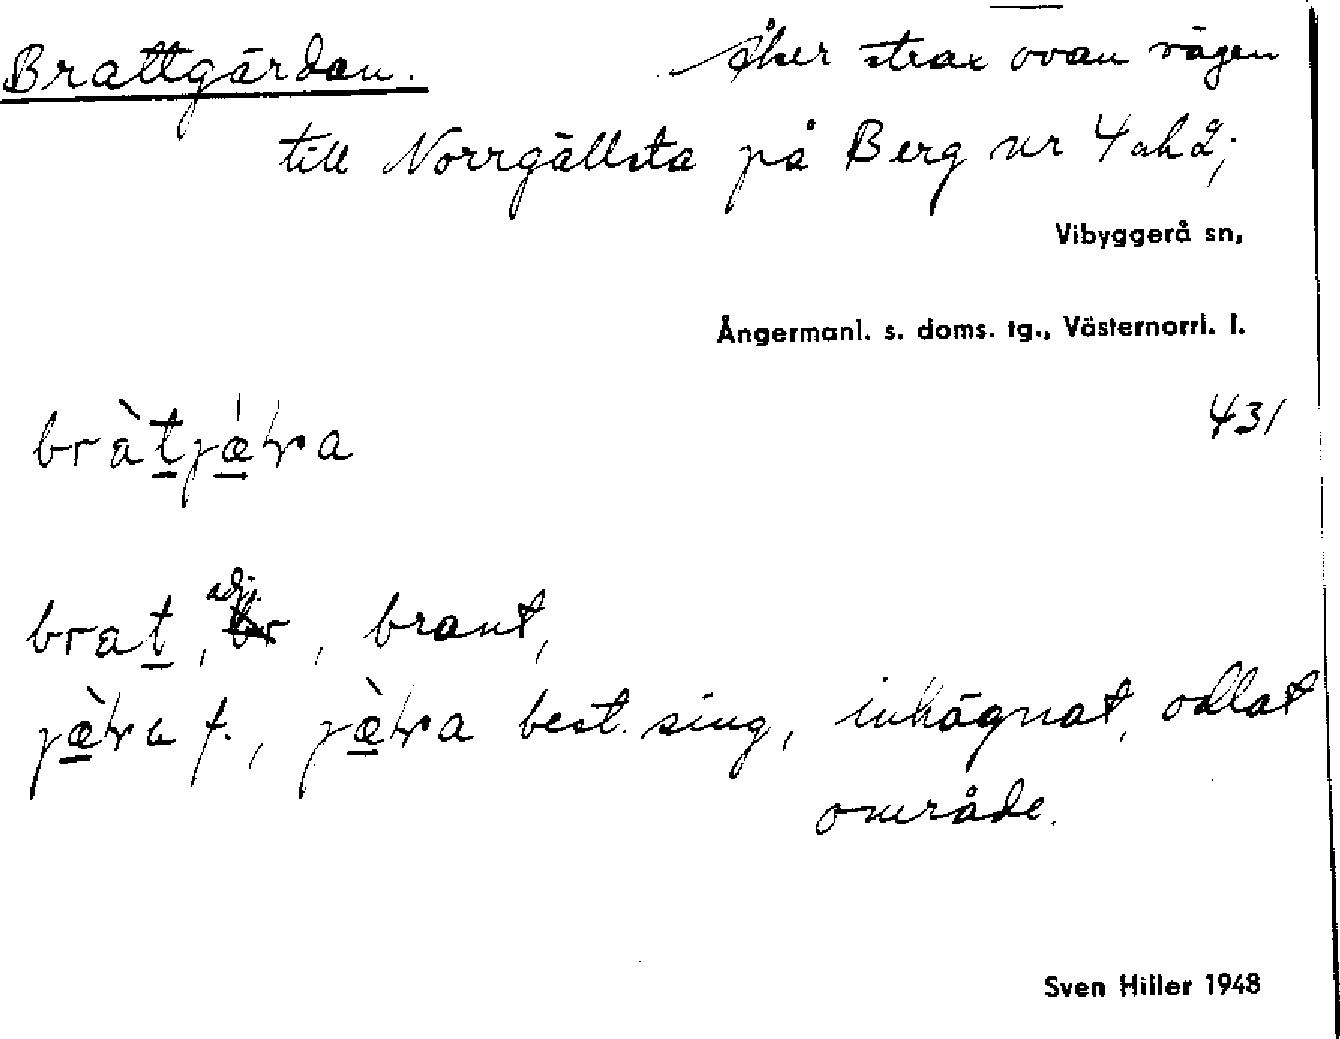 Brattgärdan. Åker strax ovan vägen
till Norrgällsta på Berg nr 4 ak 2;
Vibyggerå sn,
Ångermanl. s. doms. tg., Västernorrl. l.
431
brat, adj., brant,
f., best. sing, inhägnat, odlat
område.
Sven Hiller 1948